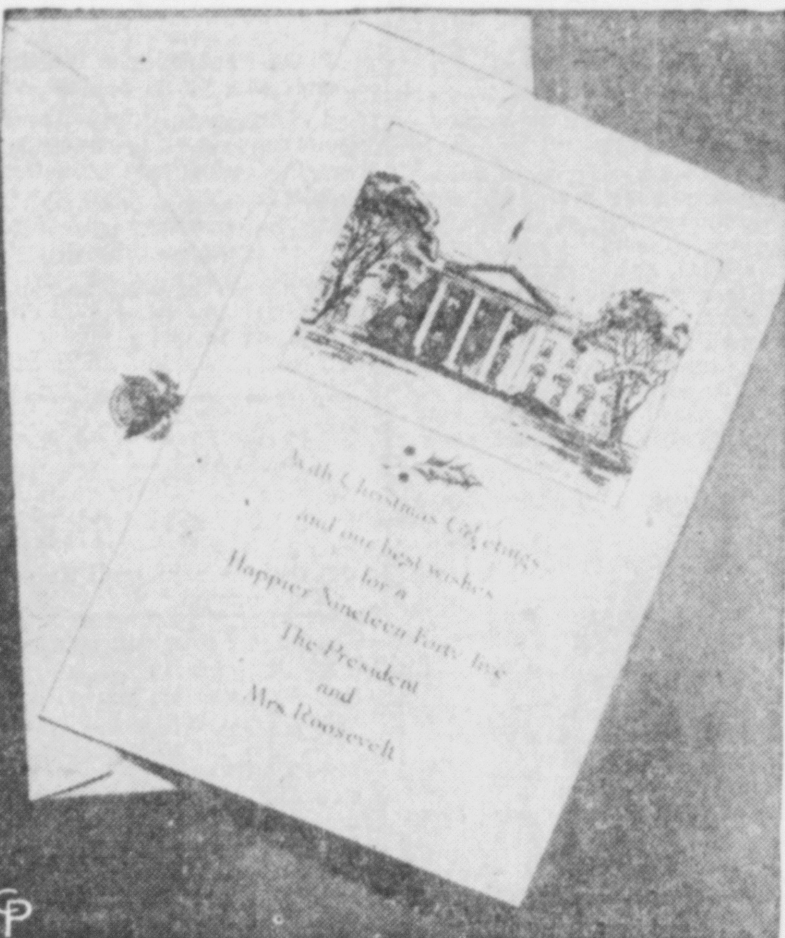 With Christmas Greetings
and our best wishes
for a
Happier Nineteen Forty-five
The President
and
Mrs. Roosevelt
CP